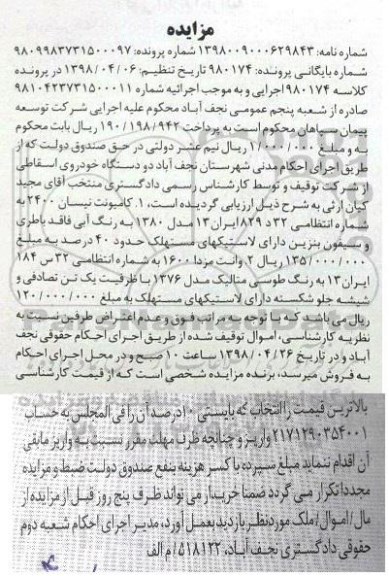 مزایده
شماره نامه: ۱۳۹۸۰۰۹۰۰۰۶۲۹۸۴۳ شماره پرونده: ۹۸۰۹۹۸۳۷۳۱۵۰۰۰۹۷
شماره بایگانی پرونده: ۹۸۰۱۷۴ تاریخ تنظیم: ۱۳۹۸/۰۴/۰۶ در پرونده
کلاسه ۹۸۰۱۷۴ اجرایی و به موجب اجرائیه شماره ۹۸۱۰۴۲۳۷۳۱۵۰۰۰۱۱
صادره از شعبه پنجم عمومی نجف آباد محکوم علیه اجرایی شرکت توسعه
پیمان سپاهان محکوم است به پرداخت ۱۹۰/۱۹۸/۹۴۲ ریال بابت محکوم
به و مبلغ ۱/۰۰۰/۰۰۰ ریال نیم عشر دولتی در حق صندوق دولت که از
طریق اجرای احکام مدنی شهرستان نجف آباد دو دستگاه خودروی اسقاطی
از شرکت توقیف و توسط کارشناس رسمی دادگستری منتخب آقای مجید
کیان ارثی به شرح ذیل ارزیابی گردیده است، ۱. کامیونت نیسان ۲۴۰۰ به
شماره انتظامی ۳۲ د ۸۲۹ ایران ۱۳ مدل ۱۳۸۰ به رنگ آبی فاقد باطری
و سیفون بنزین دارای لاستیکهای مستهلک حدود ۴۰ درصد به مبلغ
۱۳۵/۰۰۰/۰۰۰ ریال ۲. وانت مزدا ۱۶۰۰ به شماره انتظامی ۳۲ س ۱۸۴
ایران ۱۳ به رنگ طوسی متالیک مدل ۱۳۷۶ با ظرفیت یک تن تصادفی و
شیشه جلو شکسته دارای لاستیکهای مستهلک به مبلغ ۱۲۰/۰۰۰/۰۰۰
ریال می باشد که با توجه به مراتب فوق و عدم اعتراض طرفین نسبت به
نظریه کارشناسی، اموال توقیف شده از طریق اجرای احکام حقوقی نجف
آباد و در تاریخ ۱۳۹۸/۰۴/۲۶ ساعت ۱۰ صبح و در محل اجرای احکام
به فروش میرسد، برنده مزایده شخصی است که از قیمت کارشناسی
بالاترین قیمت را انتخاب که بایستی ۱۰ درصد آن را فی المجلس به حساب
۲۱۷۱۲۹۰۳۵۴۰۰۱ واریز و چنانچه ظرف مهلت مقرر نسبت به واریز مابقی
آن اقدام ننماید مبلغ سپرده با کسر هزینه بنفع صندوق دولت ضبط و مزایده
مجددا تکرار می گردد ضمنا خریدار می تواند ظرف پنج روز قبل از مزایده از
مال/اموال/ملک موردنظر بازدید بعمل آورد، مدیر اجرای احکام شعبه دوم
حقوقی دادگستری نجف آباد، ۵۱۸۱۲۲/م الف